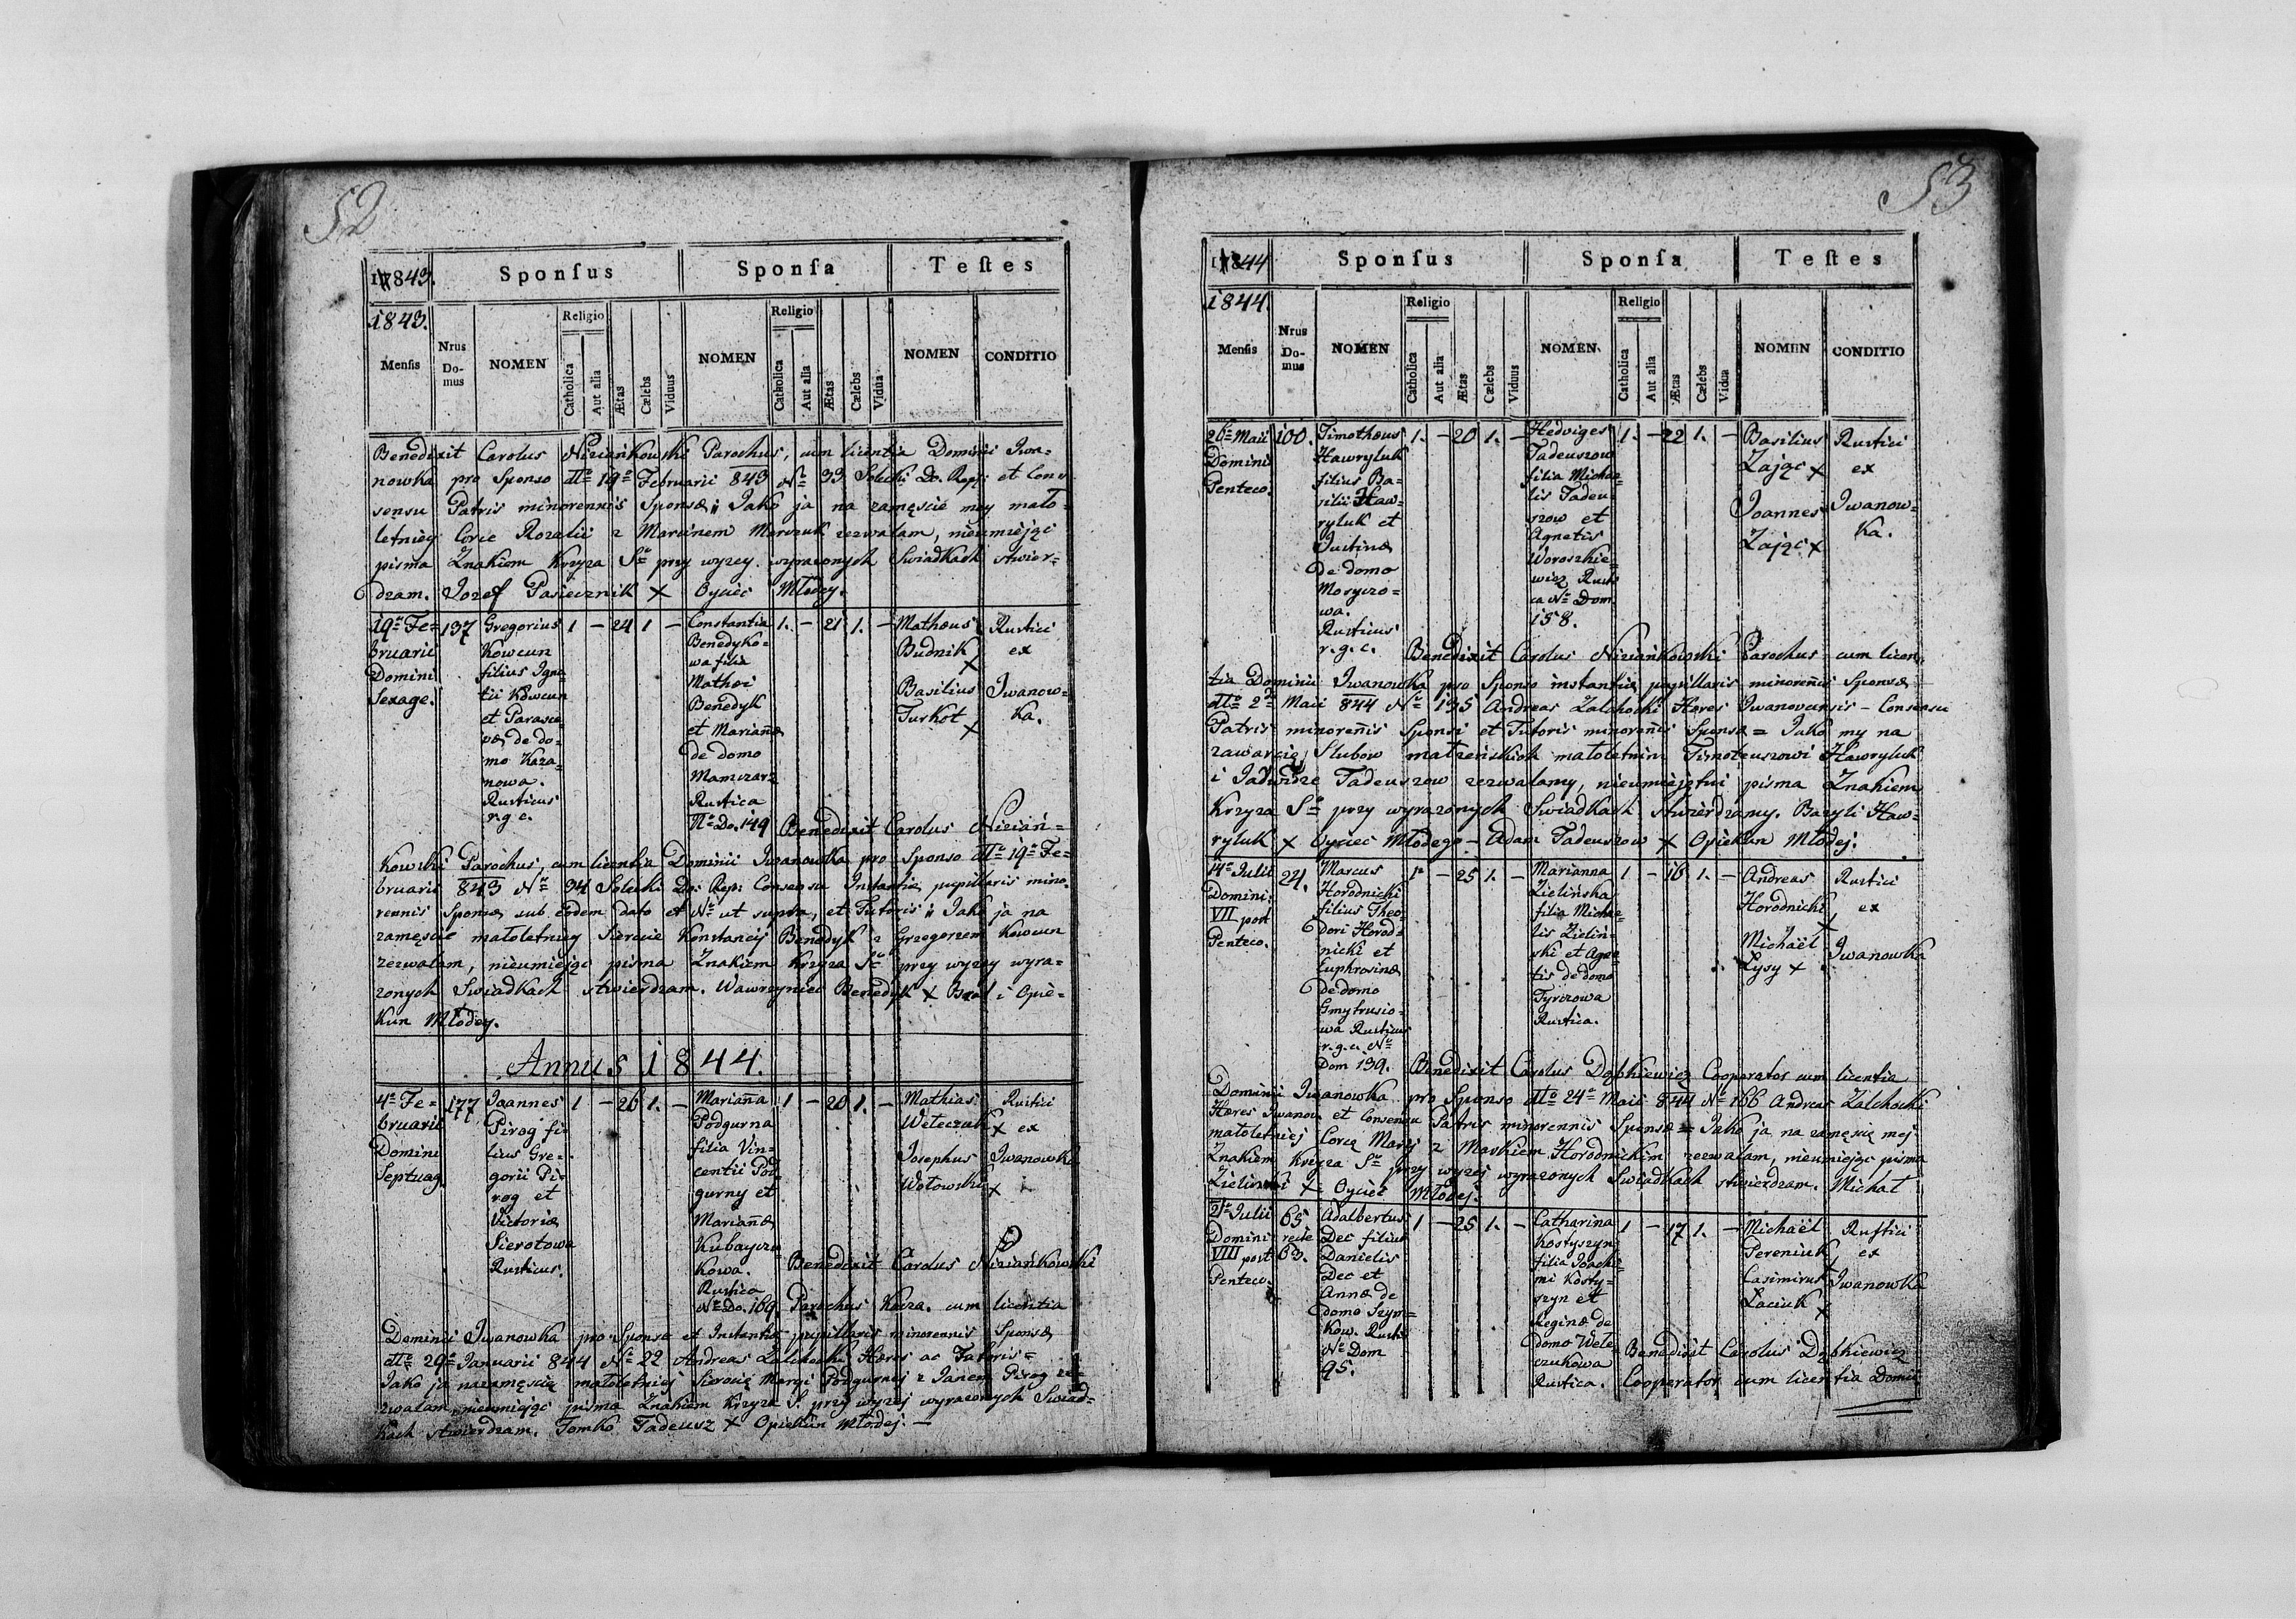 52
1843.
Sponſus
Sponſa
Teſtes
1843.
Menſis
Nrus Do-mus
NOMEN
Religio
Catholica
Aut alia
Ætas
Cælebs
Viduus
NOMEN
Religio
Catholica
Aut alia
Ætas
Cælebs
Vidua
NOMEN
CONDITIO
Benedixit Carolus Niziańkowski Parochus, cum licentia Dominii Iwa=
nowka pro Sponso dtto 19a Februarii 843 No 33 Solecki Do. Rep: et Con=
sensu Patris minorennis Sponsæ „ Jako ja na zamęscie mey mało=
letniey Corce Rozalii z Marcinem Marszuk zezwalam, nieumiejąc
pisma Znakiem Krzyza So przy wyzey wyrazonych Swiadkach stwier=
dzam. Jozef Pasiecznik X Oyciec Młodey.
19a Fe=
bruarii
Domini
Sexage.
137
Gregorius
Kowcun
filius Igna=
tii Kowcun
et Parasce=
væ de do=
mo Kaza=
nowa.
Rusticus
r.g.c.
1 – 24 1 –
Constantia
Benedyko=
wa filia
Mathæi
Benedyk
et Mariannæ
de domo
Mamczarz
Rustica
No Do. 149
1. – 21 1. –
Mathæus
Budnik
X
Basilius
Turkot
X
Rustici
ex
Iwanow=
ka.
Benedixit Carolus Niziań=
kowski Parochus, cum licentia Dominii Iwanowka pro Sponso dtto 19a Fe=
bruarii 843 No 34 Solecki Do: Rep: Consensu Instantiæ pupillaris mino=
rennis Sponsæ sub eodem dato et No ut supra, et Tutoris „ Jako ja na
zamęscie małoletniey Sierocie Konstancij Benedyk z Grzegorzem Kowcun
zezwalam, nieumiejąc pisma Znakiem Krzyza So przy wyzey wyra=
zonych Swiadkach stwierdzam. Wawrzyniec Benedyk X Brat i Opie=
kun Młodey.
Annus 1844.
4a Fe=
bruarii
Domini
Septuag.
177
Joannes
Pirog fi=
lius Gre=
gorii Pi=
rog et
Victoriæ
Sierotowa
Rusticus.
1 – 26 1. –
Marianna
Podgurna
filia Vin=
centii Pod=
gurny et
Mariannæ
Kubaycza=
kowa.
Rustica
No Do. 169
1 – 20 1. –
Mathias
Weteczuk
X
Josephus
Wotowski
X
Rustici
ex
Iwanowka
Benedixit Carolus Niziańkowski
Parochus Kacza. cum licentia
Dominii Iwanowka pro Sponso et Instantiæ pupillaris minorennis Sponsæ
dtto 29a Januarii 844 No 22 Andreas Zalchocki Hæres ac Tutoris =
Jako ja na zamęscię małoletniej Sierocię Maryi Podgurnej z Janem Pirog ze=
zwalam nieumiejąc pisma Znakiem Krzyza S. przy wyzej wyrazonych Swiad=
kach stwierdzam. Tomko Tadeusz X Opiekun Młodej. –
53
1844
Sponſus
Sponſa
Teſtes
1844.
Menſis
Nrus Do-mus
NOMEN
Religio
Catholica
Aut alia
Ætas
Cælebs
Viduus
NOMEN
Religio
Catholica
Aut alia
Ætas
Cælebs
Vidua
NOMEN
CONDITIO
26a Maii
Domini
Penteco.
100.
Timothæus
Hawryluk
filius Ba=
silii Haw=
ryluk et
Justinæ
de domo
Moryczo=
wa.
Rusticus
r.g.c.
1. – 20 1. –
Hedviges
Tadeuszow
filia Michae=
lis Tadeu=
szow et
Agnetis
Woroszkie=
wicz Rusti=
ca No Dom.
158.
1. – 22 1. –
Basilius
Zając X
Joannes
Zając X
Rustici
ex
Iwanow=
ka.
Benedixit Carolus Niziańkowski Parochus cum licen=
tia Dominii Iwanowka pro Sponso instantiæ pupillaris minorennis Sponsæ
dtto 2a Maii 844 No 135 Andreas Zalchocki Hæres Iwanovcensis – Consensu
Patris minorennis Sponsi et Tutoris minorennis Sponsæ = Jako my na
zawarcię Slubow małzenskich małoletnim Timoteuszowi Hawryluk
i Jadwidze Tadeuszow zezwalamy, nieumiejętni pisma Znakiem
Krzyza So przy wyrazonych Swiadkach stwierdzamy. Bazyli Haw=
ryluk X Oyciec Młodego – Adam Tadeuszow X Opiekun Młodej.
14a Julii
Domini:
VII post
Penteco.
24.
Marcus
Horodnicki
filius Theo=
dori Horod=
nicki et
Euphrosinæ
de domo
Gmytrusio=
wa Rusticus
r.g.c. No
Dom 139.
1 – 25 1. –
Marianna
Zielińska
filia Michae=
lis Zieliń=
ski et Agne=
tis de domo
Tyrczowa
Rustica.
1 – 16 1. –
Andreas
Horodnicki
X
Michaël
Łysy X
Rustici
ex
Iwanowka
Benedixit Carolus Dąbkiewicz Cooperator cum licentia
Dominii Iwanowka pro Sponso dtto 24a Maii 844 No 166 Andreas Zalchocki
Hæres Iwanov. et Consensu Patris minorennis Sponsæ = Jako ja na zamęscię mej
małoletniej Corcę Maryi z Markiem Horodnickim zezwalam, nieumiejąc pisma
Znakiem Krzyza So przy wyzej wyrazonych Swiadkach stwierdzam. Michał
Zielinski X Oyciec Młodej.
21a Julii
Domini
VIII post
Penteco.
65
recte
63.
Adalbertus
Dec filius
Danielis
Dec et
Annæ de
domo Szym=
kow. Rusti=
No Dom
95.
1 – 25 1. –
Catharina
Kostyszyn
filia Joachi=
mi Kosty=
szyn et
Reginæ de
domo Wete=
czukowa
Rustica.
1 – 17 1. –
Michaël
Pereniuk
X
Casimirus
Łaciuk
X
Rustici
ex
Iwanowka
Benedixit Carolus Dąbkiewicz
Cooperator cum licentia Domii